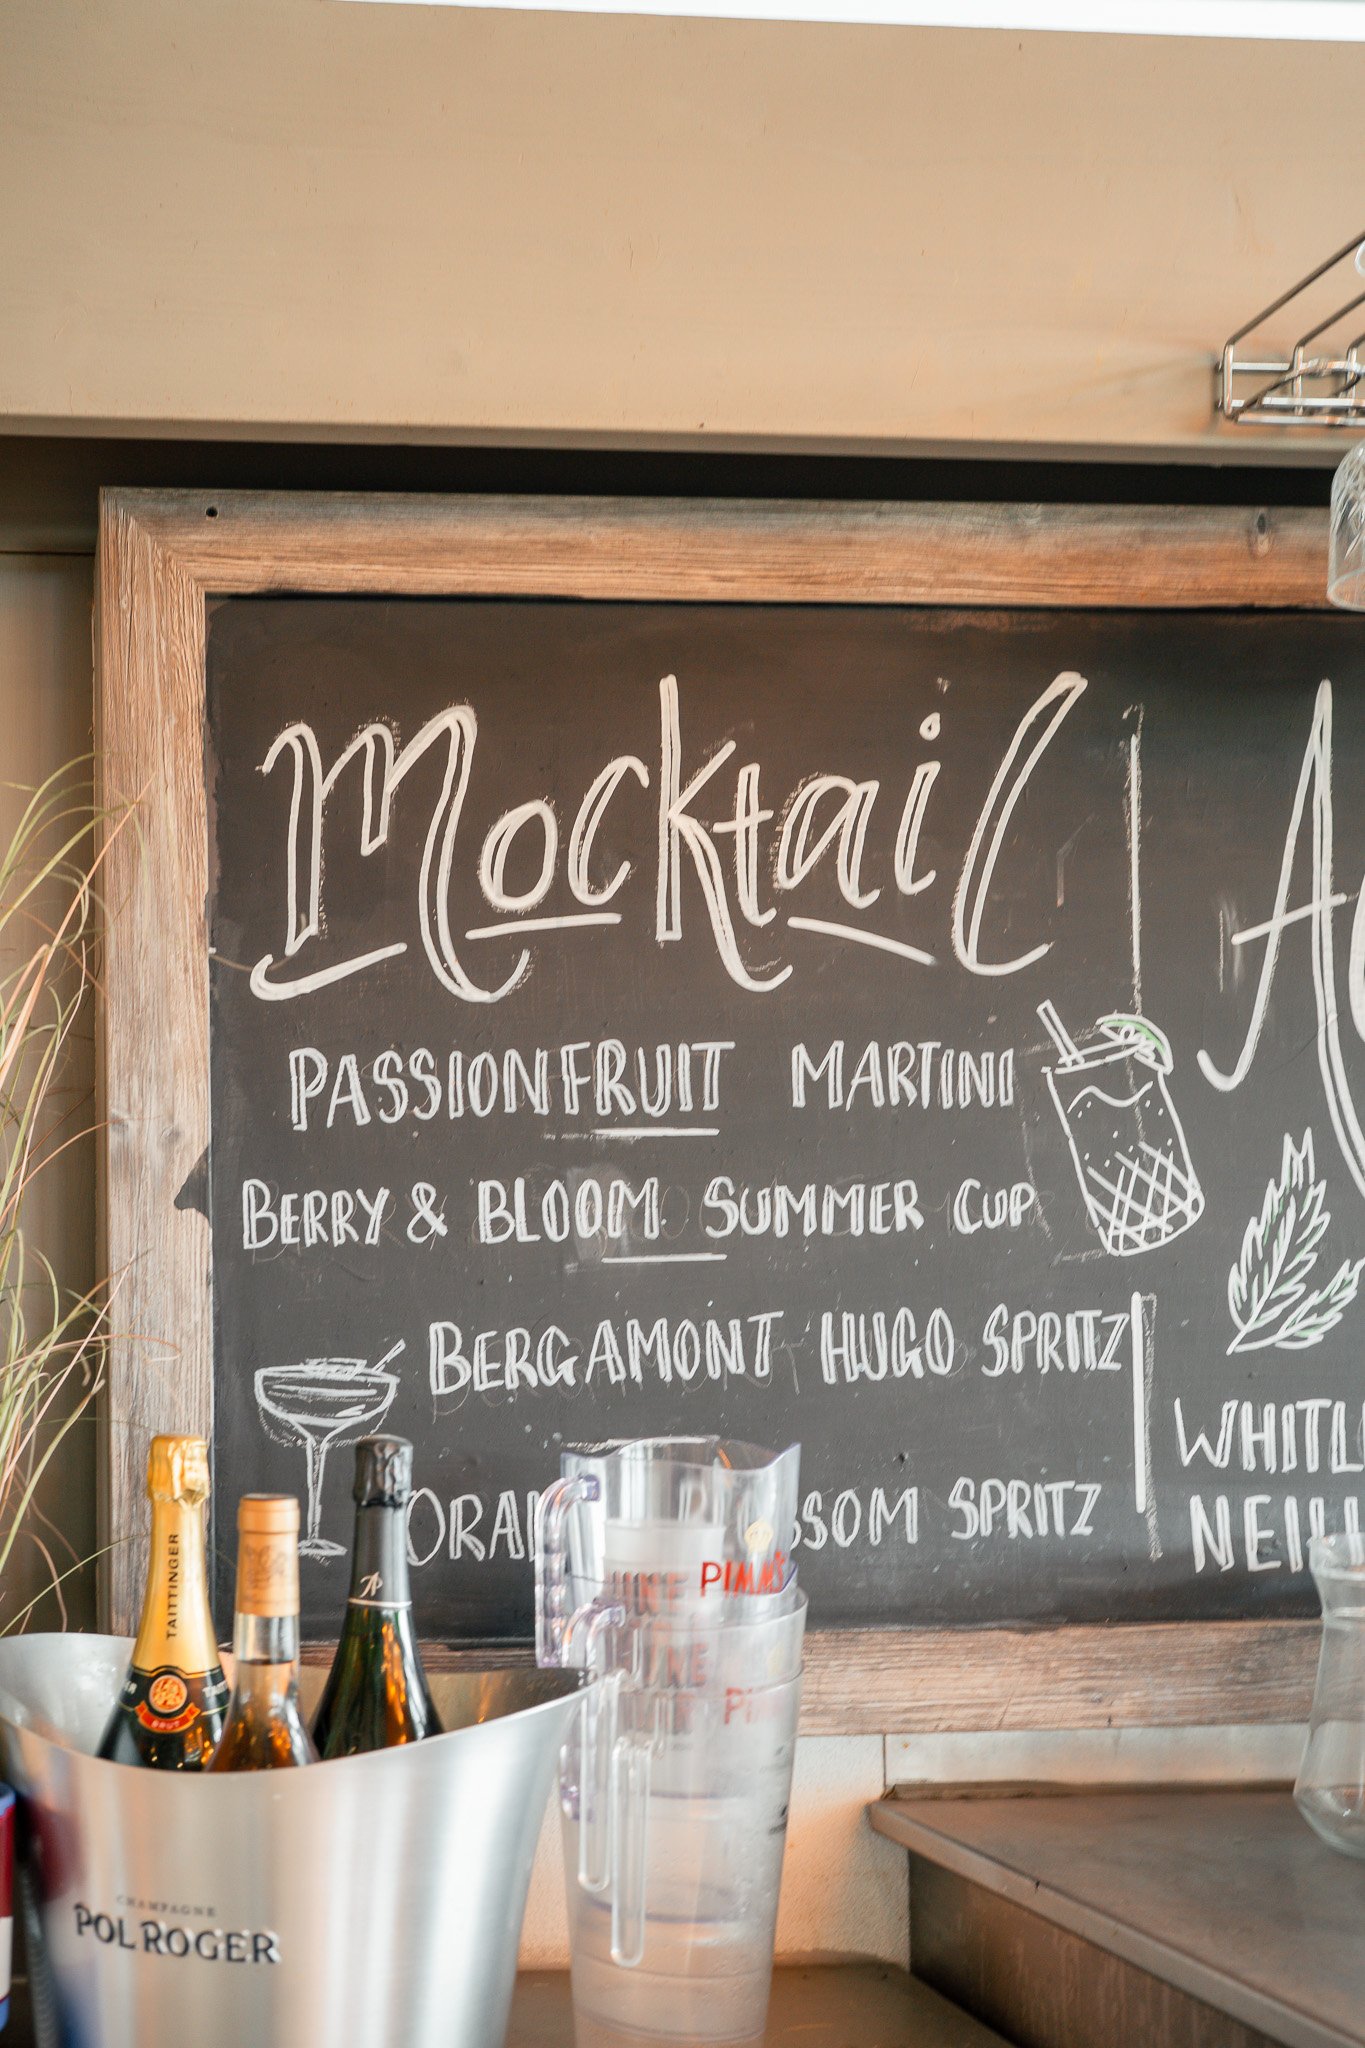 Mocktail
PASSIONFRUIT MARTINI
BERRY & BLOOM SUMMER CUP
BERGAMONT HUGO SPRITZ
SPRITZ
TAITTINGER
BRUT
PIMM'S
CHAMPAGNE
POL ROGER